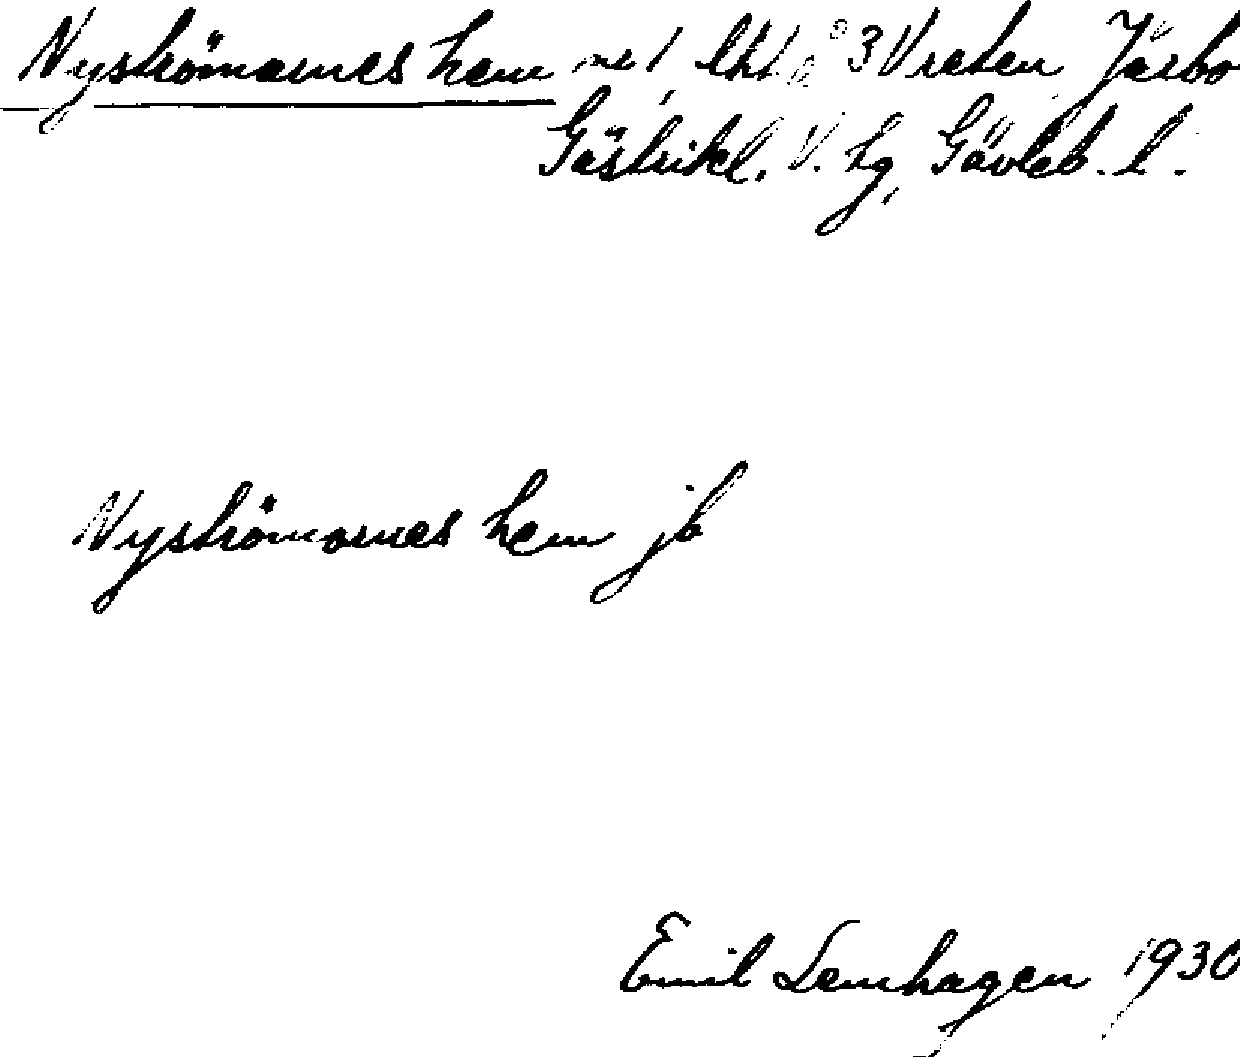 Nyströmarnes hem 3 Vreten Järbo
Gästrikl. V. hg, Gävleb. l.
Nyströmarnes hem jb
Emil Lemhagen 1930